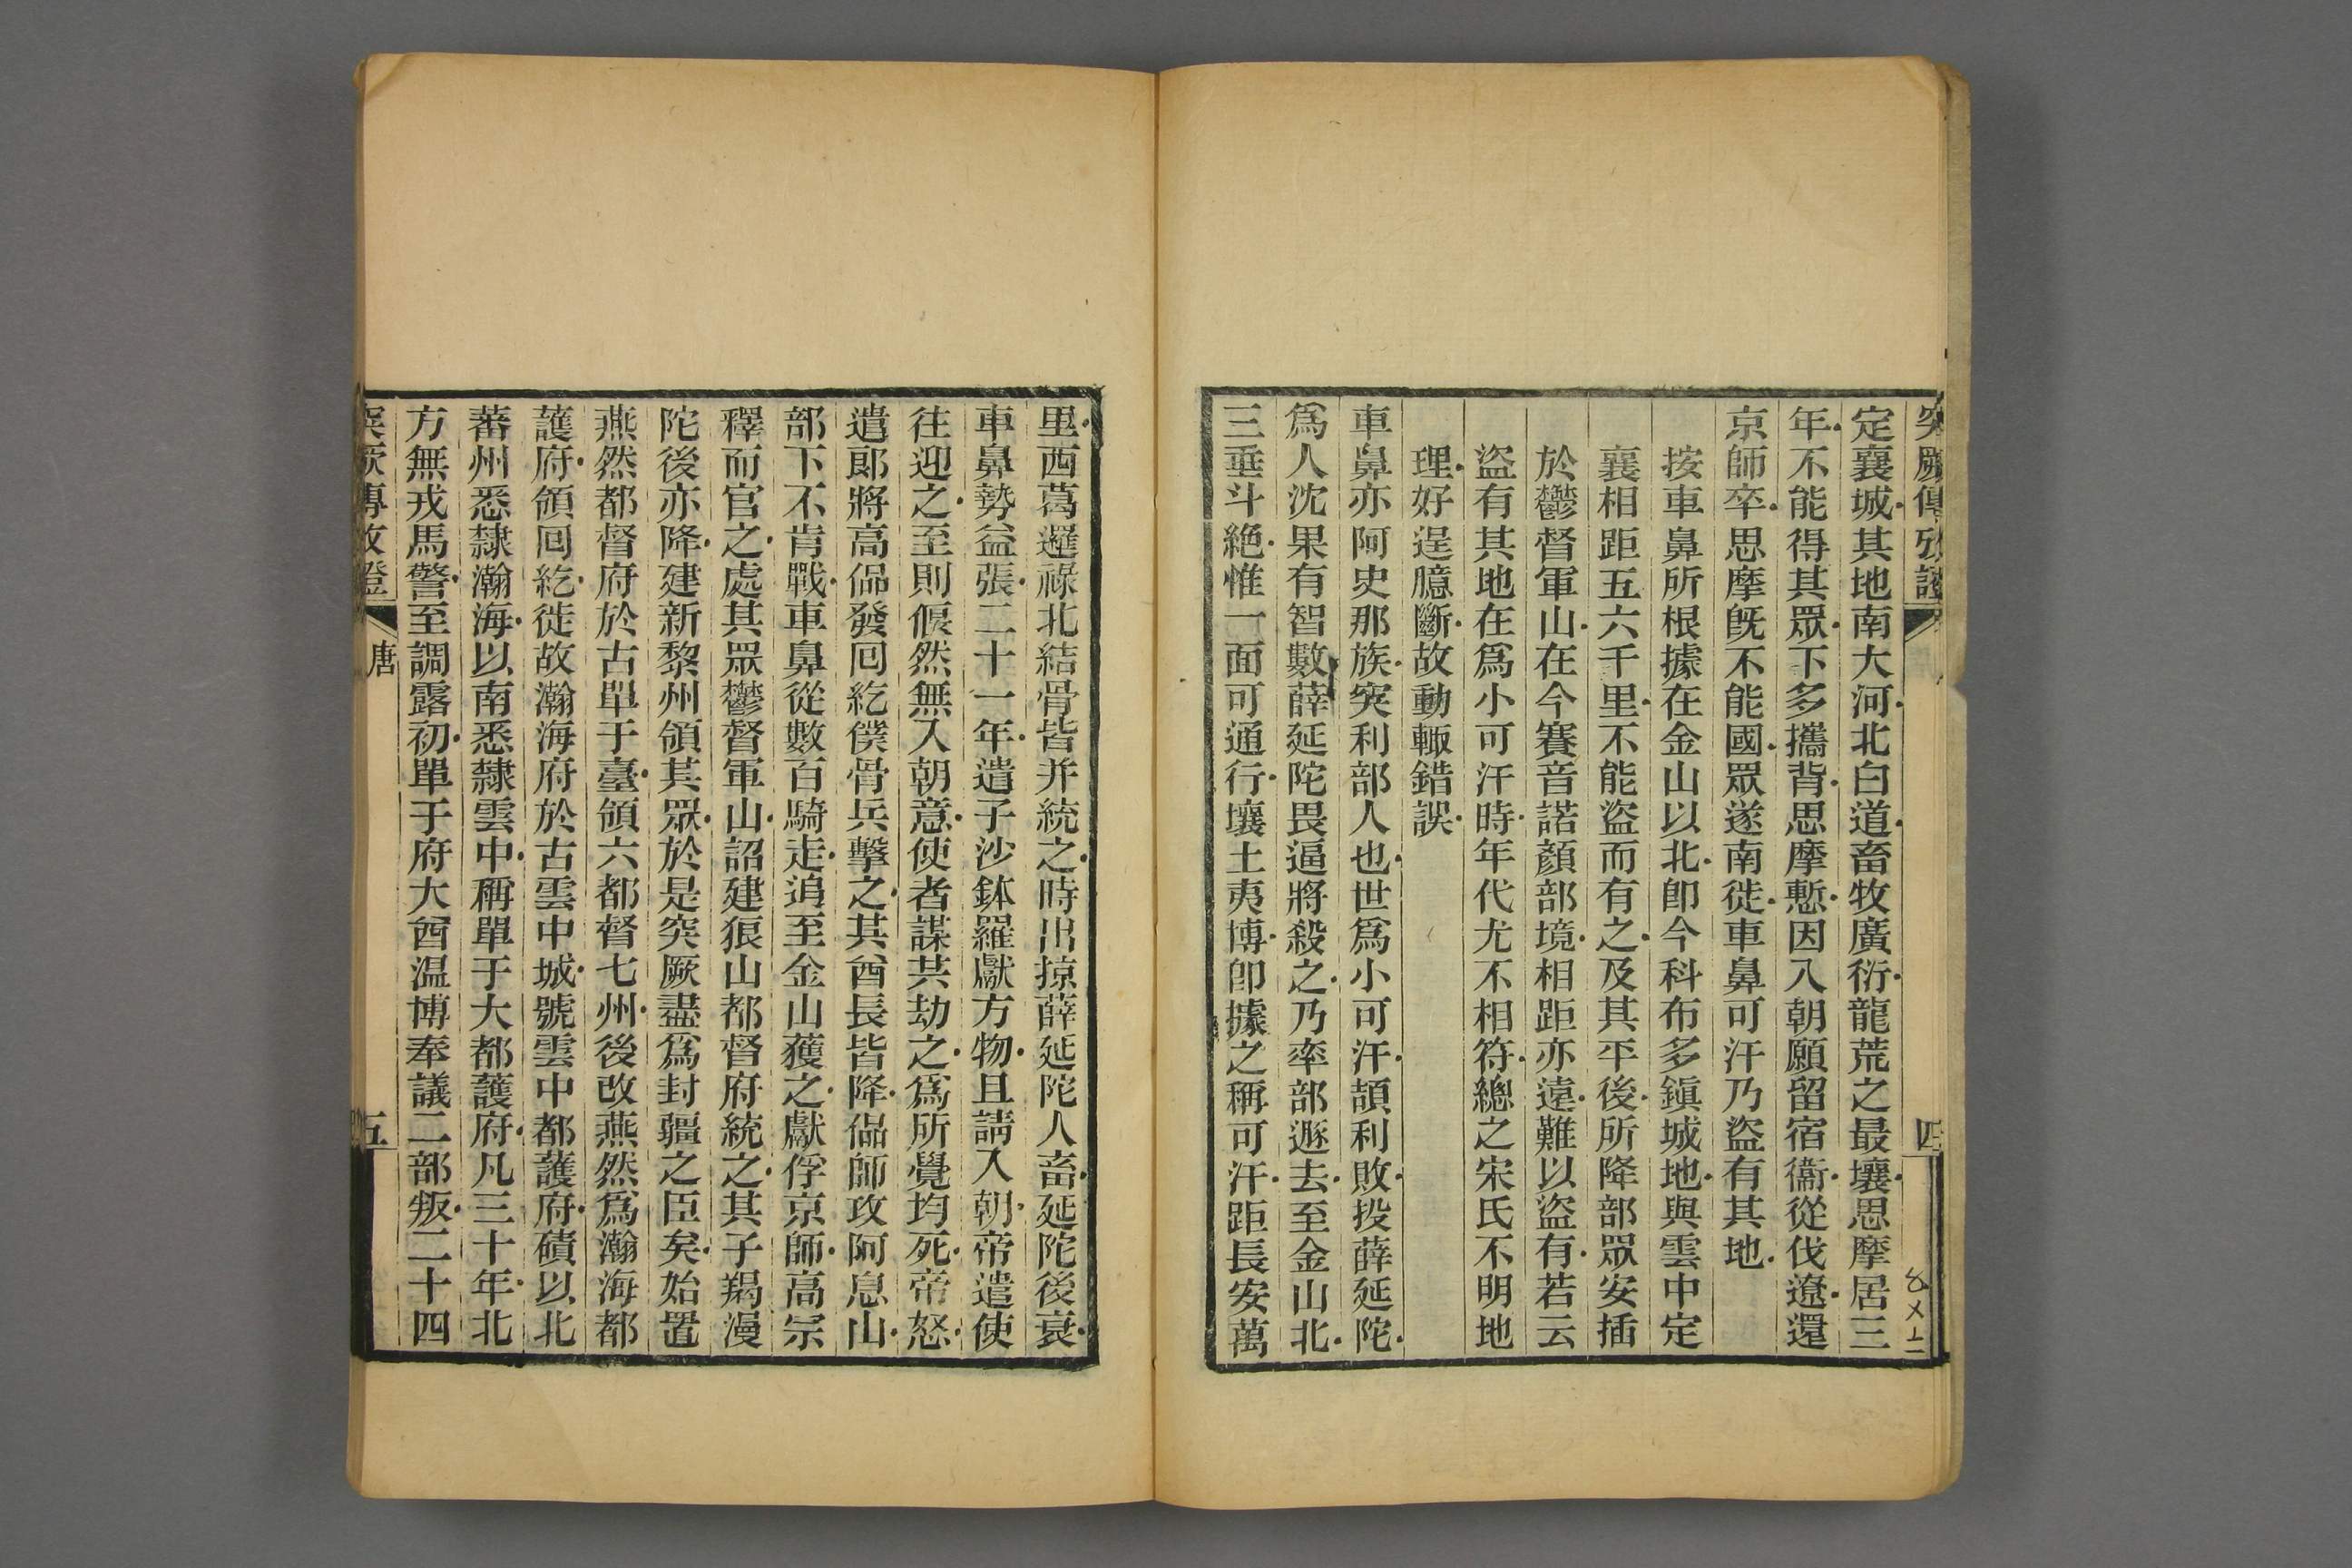 突厥傳攷證
四
定襄城其地南大河北白道畜牧廣衍龍荒之最壤思摩居三
年不能得其眾下多攜背思摩慙因入朝願留宿衞從伐遼還
京師卒思摩旣不能國眾遂南徙車鼻可汗乃盜有其地
按車鼻所根據在金山以北卽今科布多鎭城地與雲中定
襄相距五六千里不能盜而有之及其平後所降部眾安插
於鬱督軍山在今賽音諾顏部境相距亦遠難以盜有若云
盜有其地在爲小可汗時年代尤不相符總之宋氏不明地
理好逞臆斷故動輒錯誤
車鼻亦阿史那族突利部人也世爲小可汗頡利敗投薛延陀
爲人沈果有智數薛延陀畏逼將殺之乃率部遯去至金山北
三垂斗絶惟一面可通行壤土夷博卽據之稱可汗距長安萬
里西葛邏祿北結骨皆并統之時出掠薛延陀人畜延陀後衰
車鼻勢益張二十一年遣子沙鉢羅獻方物且請入朝帝遣使
往迎之至則偃然無入朝意使者謀共劫之爲所覺均死帝怒
遣郎將高偘發回紇僕骨兵擊之其酋長皆降偘師攻阿息山
部下不肯戰車鼻從數百騎走追至金山獲之獻俘京師高宗
釋而官之處其眾鬱督軍山詔建狼山都督府統之其子羯漫
陀後亦降建新黎州領其眾於是突厥盡爲封疆之臣矣始置
燕然都督府於古單于臺領六都督七州後改燕然爲瀚海都
護府領回紇徙故瀚海府於古雲中城號雲中都護府磧以北
蕃州悉隸瀚海以南悉隸雲中稱單于大都護府凡三十年北
方無戎馬警至調露初單于府大酋温博奉議二部叛二十四
突厥傳攷證
唐
五